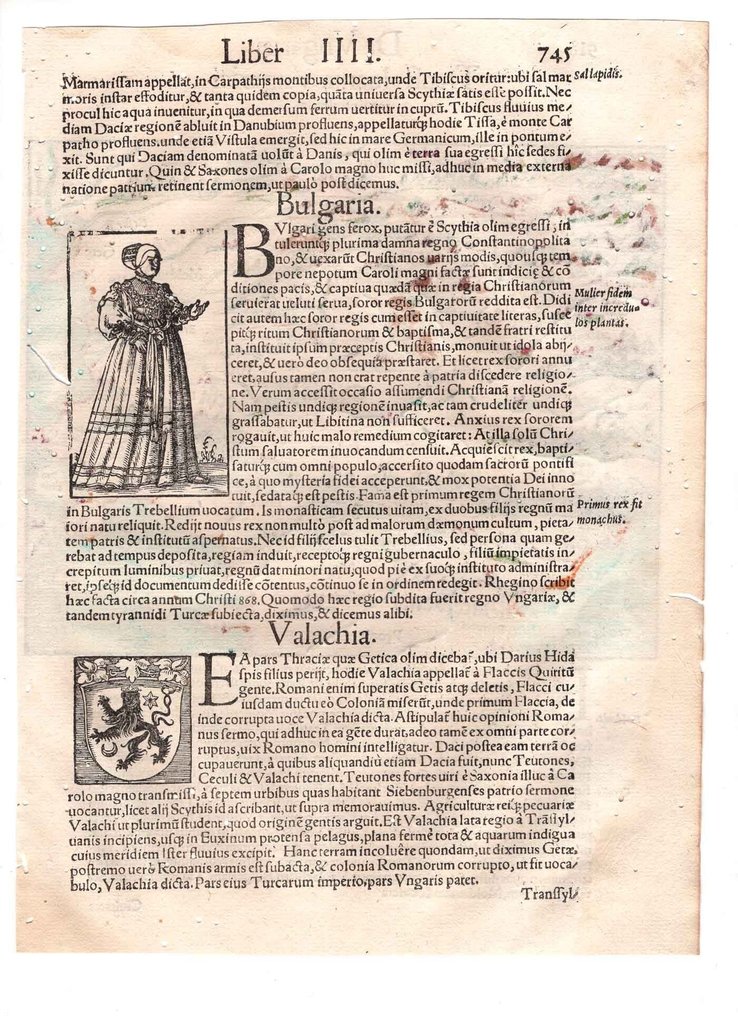 Liber IIII. 745
Marmarissam appellāt, in Carpathijs montibus collocata, unde Tibiscus oritur: ubi sal mar
Sal lapidis.
moris instar effoditur, & tanta quidem copia, quāta uniuersa Scythiæ satis esse possit. Nec
procul hic aqua inuenitur, in qua demersum ferrum uertitur in cuprū. Tibiscus fluuius me/
diam Daciæ regionē abluit in Danubium profluens, appellaturq; hodie Tissa, è monte Car
patho profluens. unde etiā Vistula emergit, sed hic in mare Germanicum, ille in pontum e/
xit. Sunt qui Daciam denominatā uolūt à Danis, qui olim è terra sua egressi hic sedes fi/
xisse dicuntur, Quin & Saxones olim à Carolo magno huc missi, adhuc in media externa
natione patrium retinent sermonem, ut paulò post dicemus.
Bulgaria.
BVlgari gens ferox, putātur è Scythia olim egressi, in
tuleruntq; plurima damna regno Constantinopolita
no, & uexarūt Christianos uarijs modis, quousq; tem
pore nepotum Caroli magni factæ sunt indiciæ & cō
ditiones pacis, & captiua quædā quæ in regia Christianorum
seruierat ueluti serua, soror regis Bulgarorū reddita est. Didi
Mulier fidem
inter incredu/
los plantat.
cit autem hæc soror regis cum esset in captiuitate literas, susce
pitq; ritum Christianorum & baptisma, & tandē fratri restitu
ta, instituit ipsum præceptis Christianis, monuit ut idola abij/
ceret, & uero deo obsequia præstaret. Et licet rex sorori annu
eret, ausus tamen non erat repente à patria discedere religio/
ne. Verum accessit occasio assumendi Christianā religionē.
Nam pestis undiq; regionē inuasit, ac tam crudeliter undiq;
grassabatur, ut Libitina non sufficeret. Anxius rex sororem
rogauit, ut huic malo remedium cogitaret: At illa solū Chri/
stum saluatorem inuocandum censuit. Acquiescit rex, bapti/
saturq; cum omni populo, accersito quodam sacrorū pontifi
ce, à quo mysteria fidei acceperunt, & mox potentia Dei inno
tuit, sedataq; est pestis. Fama est primum regem Christianorū
in Bulgaris Trebellium uocatum. Is monasticam secutus uitam, ex duobus filijs regnū ma
Primus rex fit
monachus.
iori natu reliquit. Redijt nouus rex non multò post ad malorum dæmonum cultum, pieta/
tem patris & institutū aspernatus. Nec id filij scelus tulit Trebellius, sed persona quam ge/
rebat ad tempus deposita, regiam induit, receptoq; regni gubernaculo, filiū impietatis in/
crepitum luminibus priuat, regnū dat minori natu, quod piè ex suoq; instituto administra/
ret, ipseq; id documentum dedisse cōtentus, cōtinuo se in ordinem redegit. Rhegino scribit
hæc facta circa annum Christi 868. Quomodo hæc regio subdita fuerit regno Vngariæ, &
tandem tyrannidi Turcæ subiecta, diximus, & dicemus alibi.
Valachia.
EA pars Thraciæ quæ Getica olim dicebaʳ, ubi Darius Hida
spis filius perijt, hodie Valachia appellaʳ à Flaccis Quiritū
gente. Romani enim superatis Getis atq; deletis, Flacci cu/
iusdam ductu eo Coloniā miserūt, unde primum Flaccia, de
inde corrupta uoce Valachia dicta. Astipulaʳ huic opinioni Roma/
nus sermo, qui adhuc in ea gēte durat, adeo tamē ex omni parte cor/
ruptus, uix Romano homini intelligatur. Daci postea eam terrā oc
cupauerunt, à quibus aliquandiu etiam Dacia fuit, nunc Teutones,
Ceculi & Valachi tenent. Teutones fortes uiri è Saxonia illuc à Ca
rolo magno transmissi, à septem urbibus quas habitant Siebenburgenses patrio sermone
uocantur, licet alij Scythis id ascribant, ut supra memorauimus. Agriculturæ reiq; pecuariæ
Valachi ut plurimū student, quod originē gentis arguit. Est Valachia lata regio à Trāsyl/
uanis incipiens, usq; in Euxinum protensa pelagus, plana fermè tota & aquarum indigua
cuius meridiem Ister fluuius excipit. Hanc terram incoluêre quondam, ut diximus Getæ,
postremo uerò Romanis armis est subacta, & colonia Romanorum corrupto, ut fit uoca/
bulo, Valachia dicta. Pars eius Turcarum imperio, pars Vngaris patet.
Transsyl/